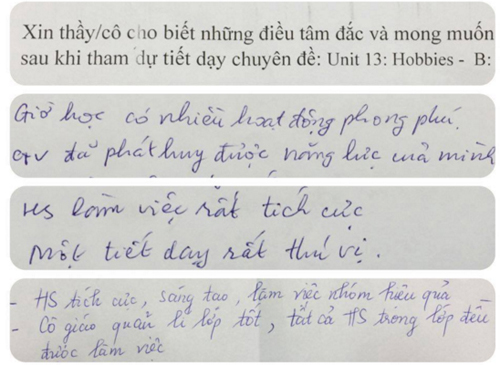 Xin thầy/cô cho biết những điều tâm đắc và mong muốn
sau khi tham dự tiết dạy chuyên đề: Unit 13: Hobbies - B:
Giờ học có nhiều hoạt động phong phú.
GV đã phát huy được năng lực của mình
HS làm việc rất tích cực
Một tiết dạy rất thú vị.
- HS tích cực, sáng tạo, làm việc nhóm hiệu quả
- Cô giáo quản lí lớp tốt, tất cả HS trong lớp đều
được làm việc